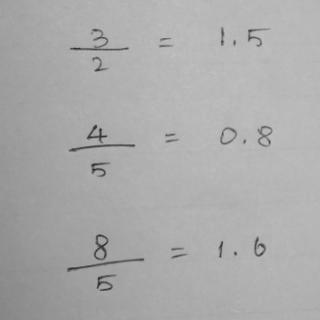 3/2 = 1.5
4/5 = 0.8
8/5 = 1.6